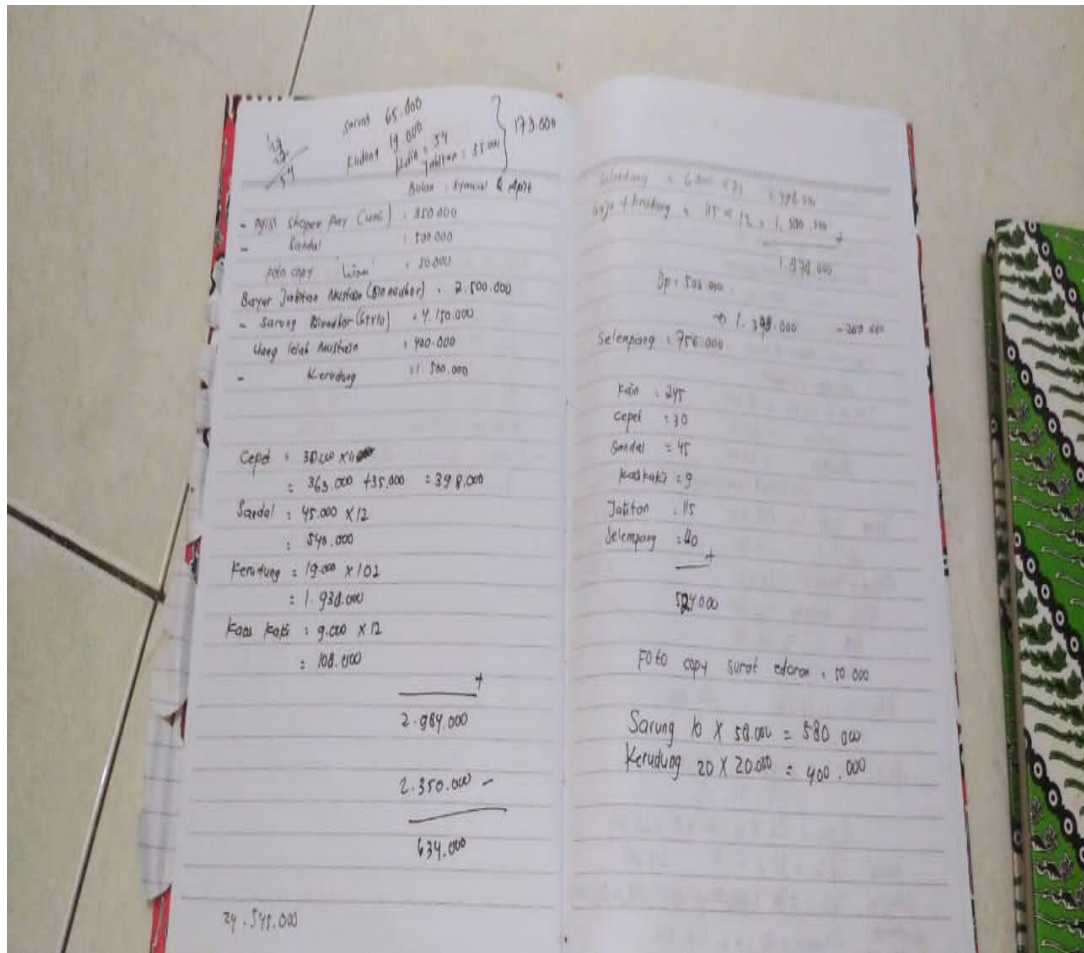 Sarung 65.000
Kudung 19.000
Kain = 54
Jahitan = 35.000
173.000
54
Bulan : Syawal & April
- Shopee Pay : 350.000
- Sandal : 500.000
Foto copy : 50.000
Bayar Jahitan : 2.500.000
- Sarung : 4.150.000
Uang lelah : 400.000
- Kerudung : 1.500.000
Cepel =
= 363.000 + 35.000 = 398.000
Sandal : 45.000 X 12
: 540.000
Kerudung = 19.000 X 102
: 1.938.000
Kaos kaki : 9.000 X 12
= 108.000
+
2.984.000
2.350.000 -
634.000
24.545.000
Selendang
Baju + kerudung = 115 x 12 = 1.380.000
+
1.878.000
Dp : 500.000
Selempang : 756.000
Kain : 245
Cepel : 30
Sandal = 45
kaos kaki : 9
Jahitan : 115
Selempang : 80
+
524000
Foto copy surat edaran : 50.000
Sarung 10 X 58.000 = 580.000
Kerudung 20 X 20.000 = 400.000